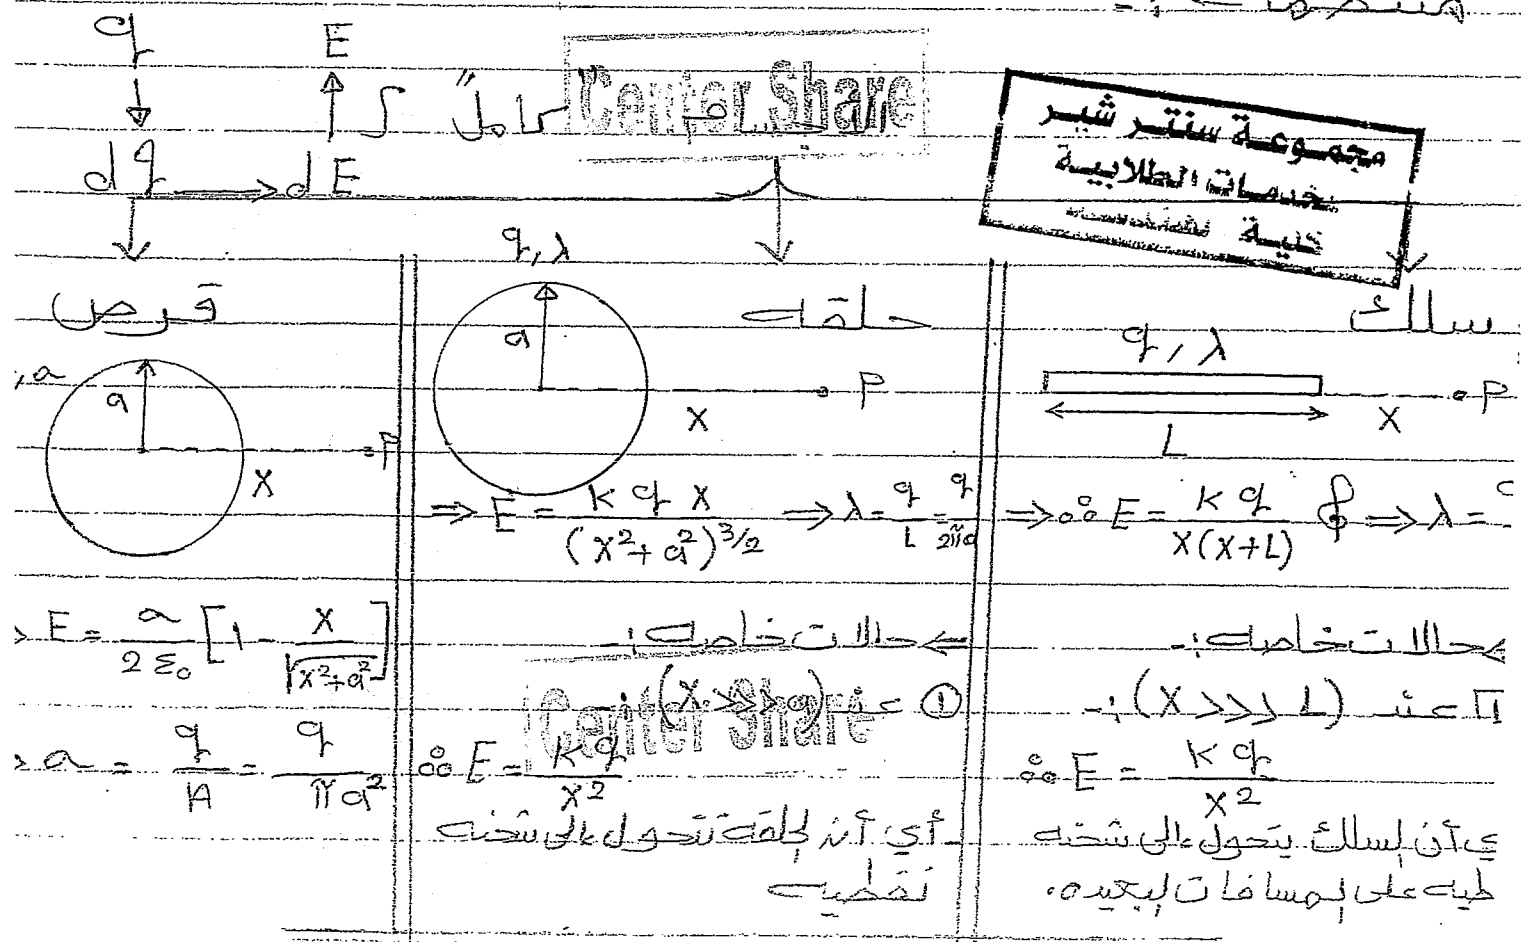 q
E
∫ "كامل"
Center Share
dq → dE
مجموعة سنتر شير
خدمات الطلابية
سلك
q, λ
P
X
L
⇒ ∴ E = kq / x(x+L) ⇒ λ =
حالات خاصه :-
1 عند (X >>> L) :-
∴ E = kq / x²
ي أن السلك يتحول إلى شحنه
طيه على المسافات البعيده.
حلقه
q, λ
a
P
X
⇒ E = kqx / (x² + a²)^3/2 ⇒ λ = q/L = q/2πa
⇐ حالات خاصه :-
① عند (X >>> a) :-
Center Share
∴ E = kq / x²
- أي أن الحلقة تتحول إلى شحنه
نقطيه
قرص
a
P
X
E = σ / 2ε₀ [1 - x / √(x² + a²)]
σ = q / A = q / πa²